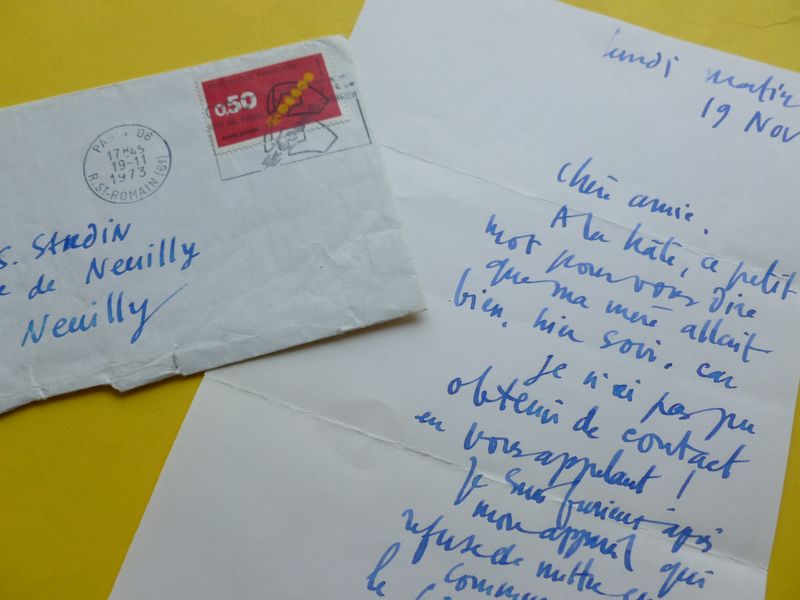 REPUBLIQUE FRANÇAISE
0,50
code postal
PARIS 06
17H45
19-11
1973
R. ST-ROMAIN (6E)
S. SARDIN
de Neuilly
Neuilly
lundi matin
19 Nov
Chère amie.
A la hâte, ce petit
mot pour vous dire
que ma mère allait
bien, hier soir, car
je n'ai pas pu
obtenir de contact
en vous appelant !
Je suis furieux après
mon appareil qui
refuse de mettre en
le